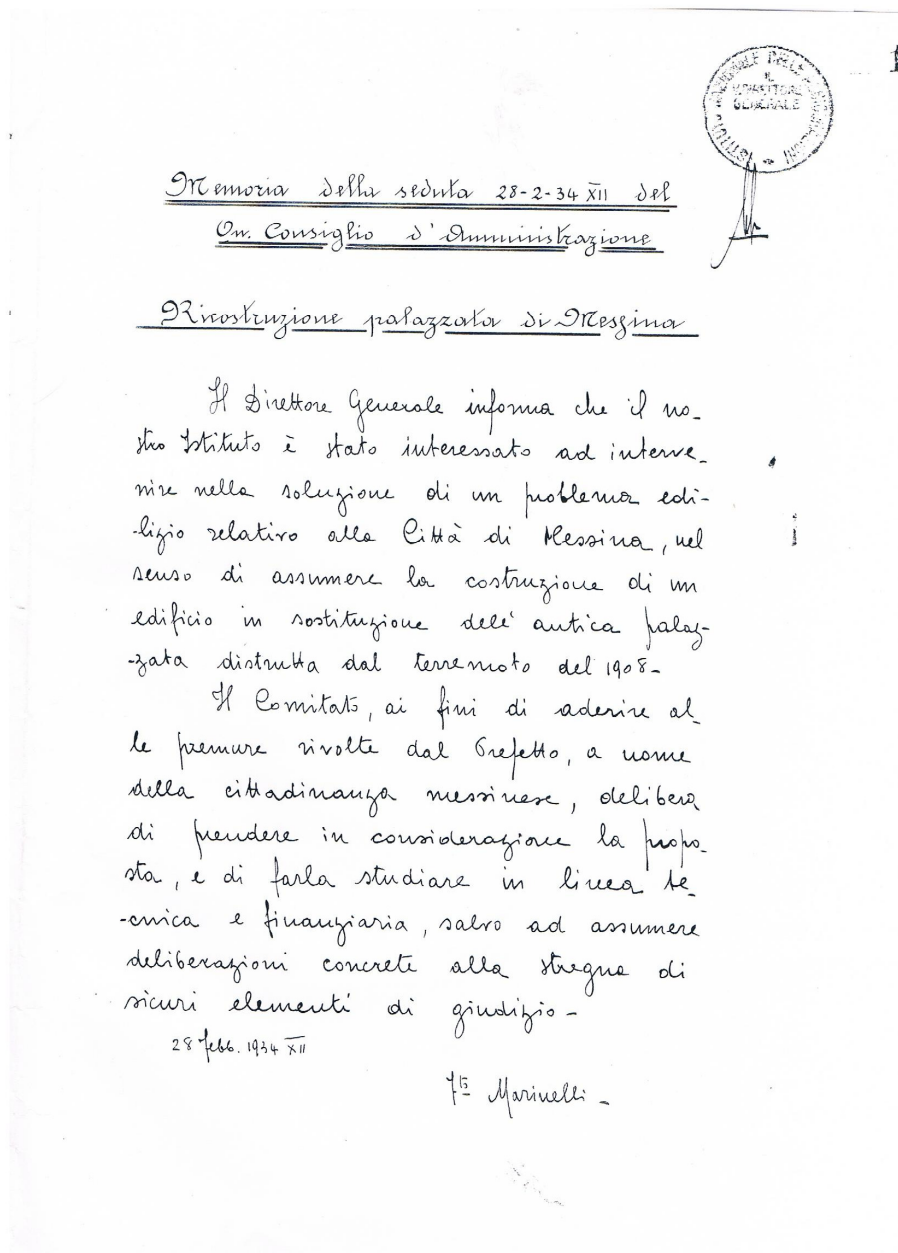 ISTITUTO NAZIONALE DELLE ASSICURAZIONI
IL
DIRETTORE
GENERALE
Memoria della seduta 28-2-34 XII del
On. Consiglio d'Amministrazione
Ricostruzione palazzata di Messina
Il Direttore Generale informa che il no-
stro Istituto è stato interessato ad interve-
nire nella soluzione di un problema edi-
-lizio relativo alla Città di Messina, nel
senso di assumere la costruzione di un
edificio in sostituzione dell'antica palaz-
-zata distrutta dal terremoto del 1908-
Il Comitato, ai fini di aderire al-
le premure rivolte dal Prefetto, a nome
della cittadinanza messinese, delibera
di prendere in considerazione la propo-
sta, e di farla studiare in linea te-
-cnica e finanziaria, salvo ad assumere
deliberazioni concrete alla stregua di
sicuri elementi di giudizio-
28 febb. 1934 XII
Fto Marinelli-